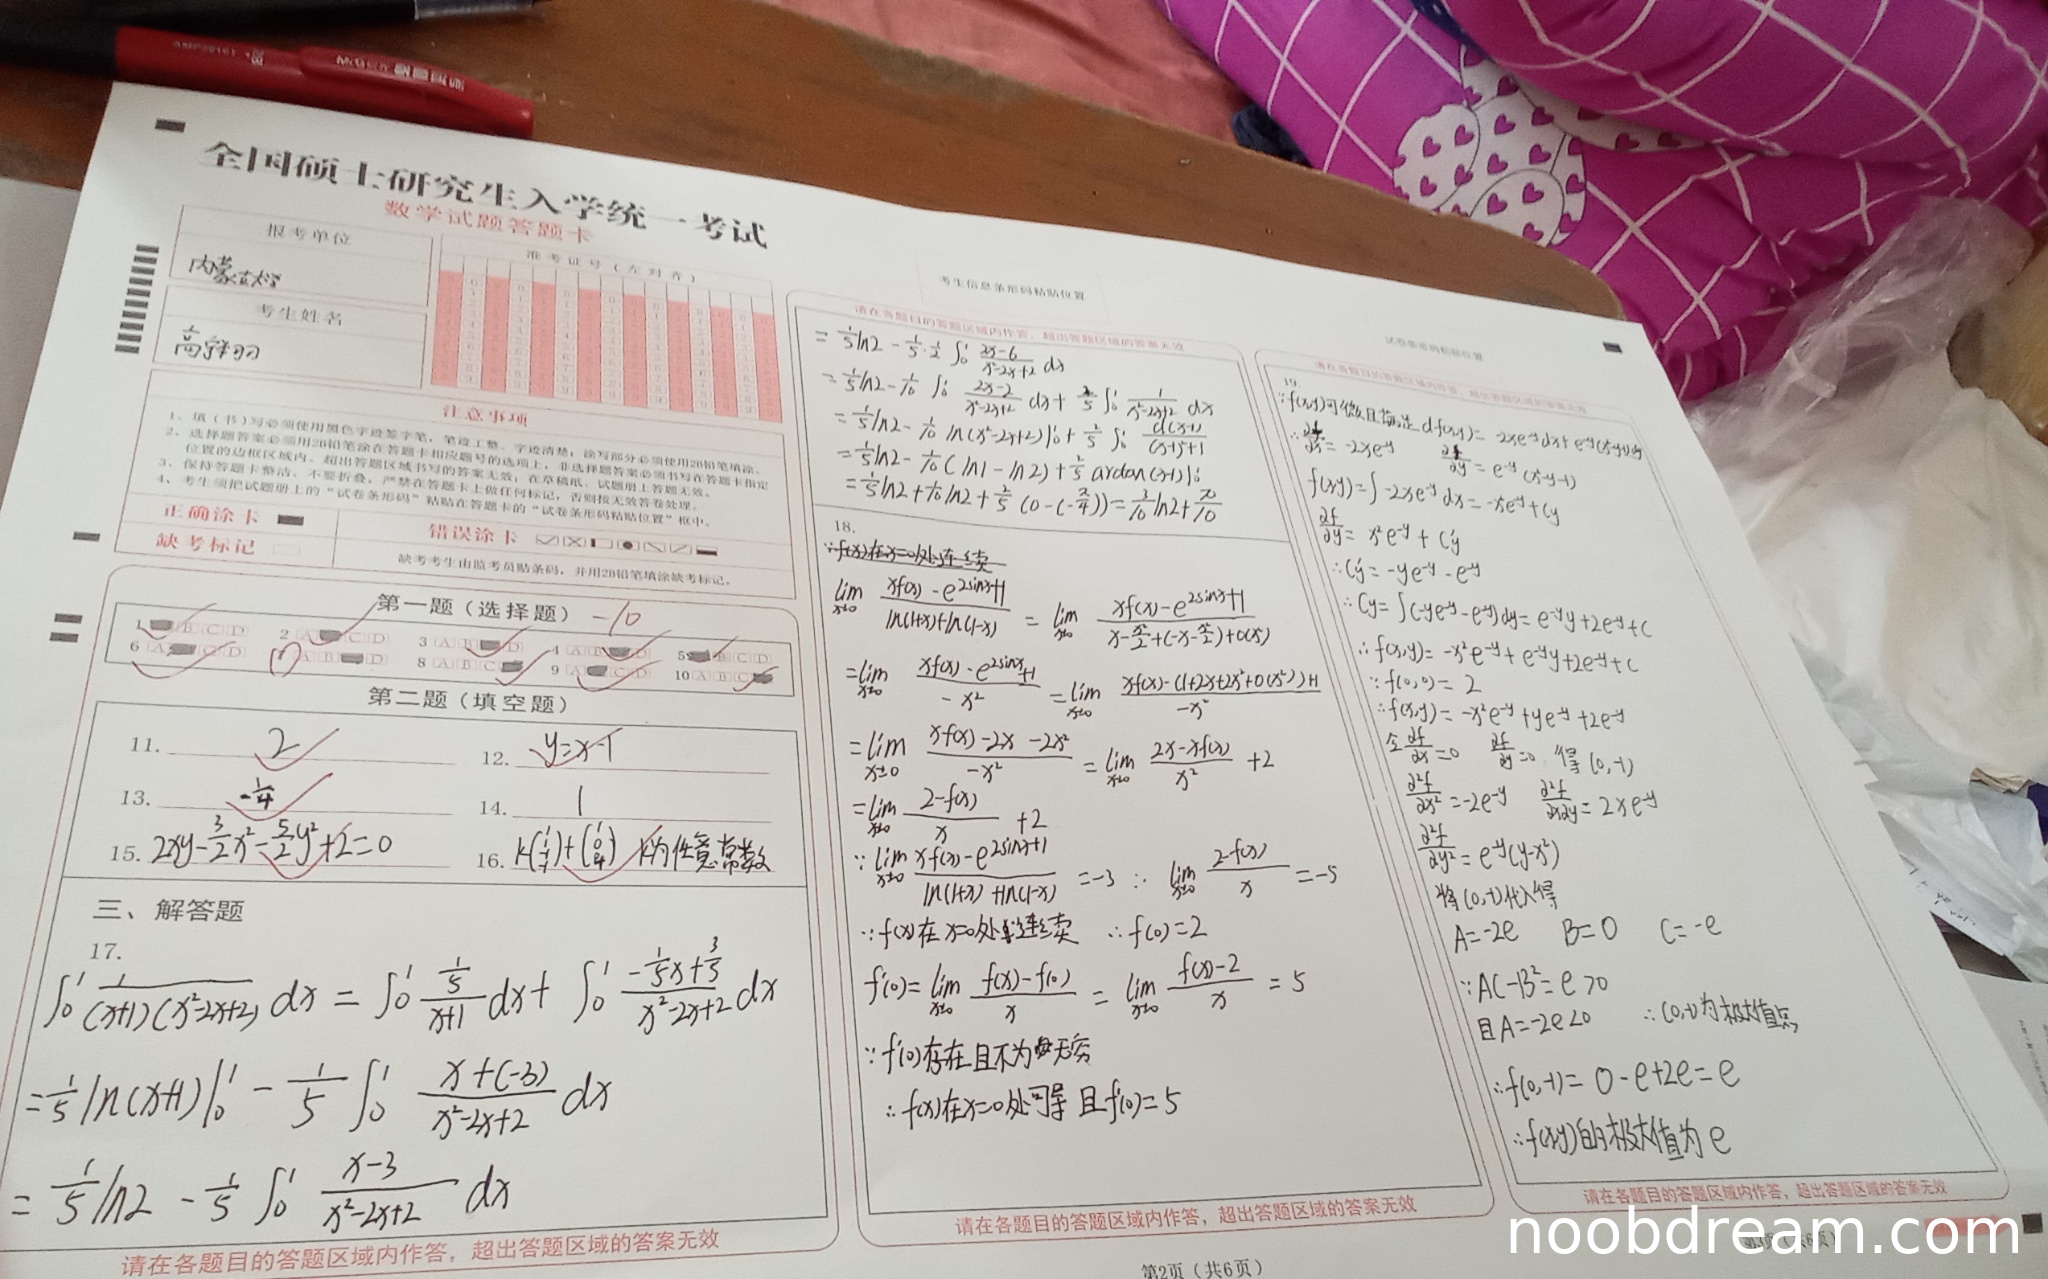 全国硕士研究生入学统一考试
数学试题答题卡
报考单位
准考证号(左对齐)
考生姓名
注意事项
1、填(书)写必须使用黑色字迹签字笔,笔迹工整,字迹清楚;涂写部分必须使用2B铅笔填涂。
2、选择题答案必须用2B铅笔涂在答题卡相应题号的选项上,非选择题答案必须书写在答题卡指定
位置的边框区域内。超出答题区域书写的答案无效;在草稿纸、试题册上答题无效。
3、保持答题卡整洁、不要折叠,严禁在答题卡上做任何标记,否则按无效答卷处理。
4、考生须把试题册上的“试卷条形码”粘贴在答题卡的“试卷条形码粘贴位置”框中。
正确涂卡
错误涂卡
缺考标记
缺考考生由监考员贴条码,并用2B铅笔填涂缺考标记。
第一题(选择题) -10
1 B C D 2 A C D 3 A B D 4 A B D 5 B C D
6 A C D A B D 8 A B C 9 A C D 10 A B C
第二题(填空题)
11. 2 12. y=x-1
13. -1/4 14. 1
15. 2xy-3/2x²-5/2y²+2=0 16. k为任意常数
三、解答题
17.
∫₀¹ 1/((x+1)(x²-2x+2)) dx = ∫₀¹ (1/5)/(x+1) dx + ∫₀¹ (-1/5x+3/5)/(x²-2x+2) dx
= 1/5 ln(x+1)|₀¹ - 1/5 ∫₀¹ (x+(-3))/(x²-2x+2) dx
= 1/5 ln2 - 1/5 ∫₀¹ (x-3)/(x²-2x+2) dx
请在各题目的答题区域内作答,超出答题区域的答案无效
考生信息条形码粘贴位置
请在各题目的答题区域内作答,超出答题区域的答案无效
= 1/5 ln2 - 1/5·1/2 ∫₀¹ (2x-6)/(x²-2x+2) dx
= 1/5 ln2 - 1/10 ∫₀¹ (2x-2)/(x²-2x+2) dx + 2/5 ∫₀¹ 1/(x²-2x+2) dx
= 1/5 ln2 - 1/10 ln(x²-2x+2)|₀¹ + 2/5 ∫₀¹ d(x-1)/((x-1)²+1)
= 1/5 ln2 - 1/10 (ln1-ln2) + 2/5 arctan(x-1)|₀¹
= 1/5 ln2 + 1/10 ln2 + 2/5 (0-(-π/4)) = 3/10 ln2 + π/10
18.
∵f(x)在x=0处连续
lim x→0 (xf(x)-e^(2sinx)+1)/(ln(1+x)+ln(1-x)) = lim x→0 (xf(x)-e^(2sinx)+1)/(x-x²/2+(-x-x²/2)+o(x²))
= lim x→0 (xf(x)-e^(2sinx)+1)/(-x²) = lim x→0 (xf(x)-(1+2x+2x²+o(x²))+1)/(-x²)
= lim x→0 (xf(x)-2x-2x²)/(-x²) = lim x→0 (2x-xf(x))/x² +2
= lim x→0 (2-f(x))/x +2
∵ lim x→0 (xf(x)-e^(2sinx)+1)/(ln(1+x)+ln(1-x)) = -3 ∴ lim x→0 (2-f(x))/x = -5
∵f(x)在x=0处连续 ∴f(0)=2
f'(0)= lim x→0 (f(x)-f(0))/x = lim x→0 (f(x)-2)/x = 5
∵f'(0)存在且不为无穷
∴f(x)在x=0处可导 且f'(0)=5
请在各题目的答题区域内作答,超出答题区域的答案无效
第2页(共6页)
试卷条形码粘贴位置
请在各题目的答题区域内作答,超出答题区域的答案无效
19.
∵f(x,y)可微且满足 df(x,y)= -2xe^-y dx+e^-y(x²-y-1)dy
∴ ∂f/∂x = -2xe^-y ∂f/∂y = e^-y(x²-y-1)
f(x,y)=∫-2xe^-y dx=-x²e^-y+Cy
∂f/∂y = x²e^-y+C'y
∴C'y=-ye^-y-e^-y
∴Cy=∫(-ye^-y-e^-y)dy=e^-y y+2e^-y+C
∴f(x,y)=-x²e^-y+e^-y y+2e^-y+C
∵f(0,0)=2
∴f(x,y)=-x²e^-y+ye^-y+2e^-y
令 ∂f/∂x=0 ∂f/∂y=0 得(0,-1)
∂²f/∂x²=-2e^-y ∂²f/∂x∂y=2xe^-y
∂²f/∂y²=e^-y(y-x²)
将(0,-1)代入得
A=-2e B=0 C=-e
∵AC-B²=e>0
且A=-2e<0 ∴(0,-1)为极大值点
∴f(0,-1)=0-e+2e=e
∴f(x,y)的极大值为e
请在各题目的答题区域内作答,超出答题区域的答案无效
noobdream.com